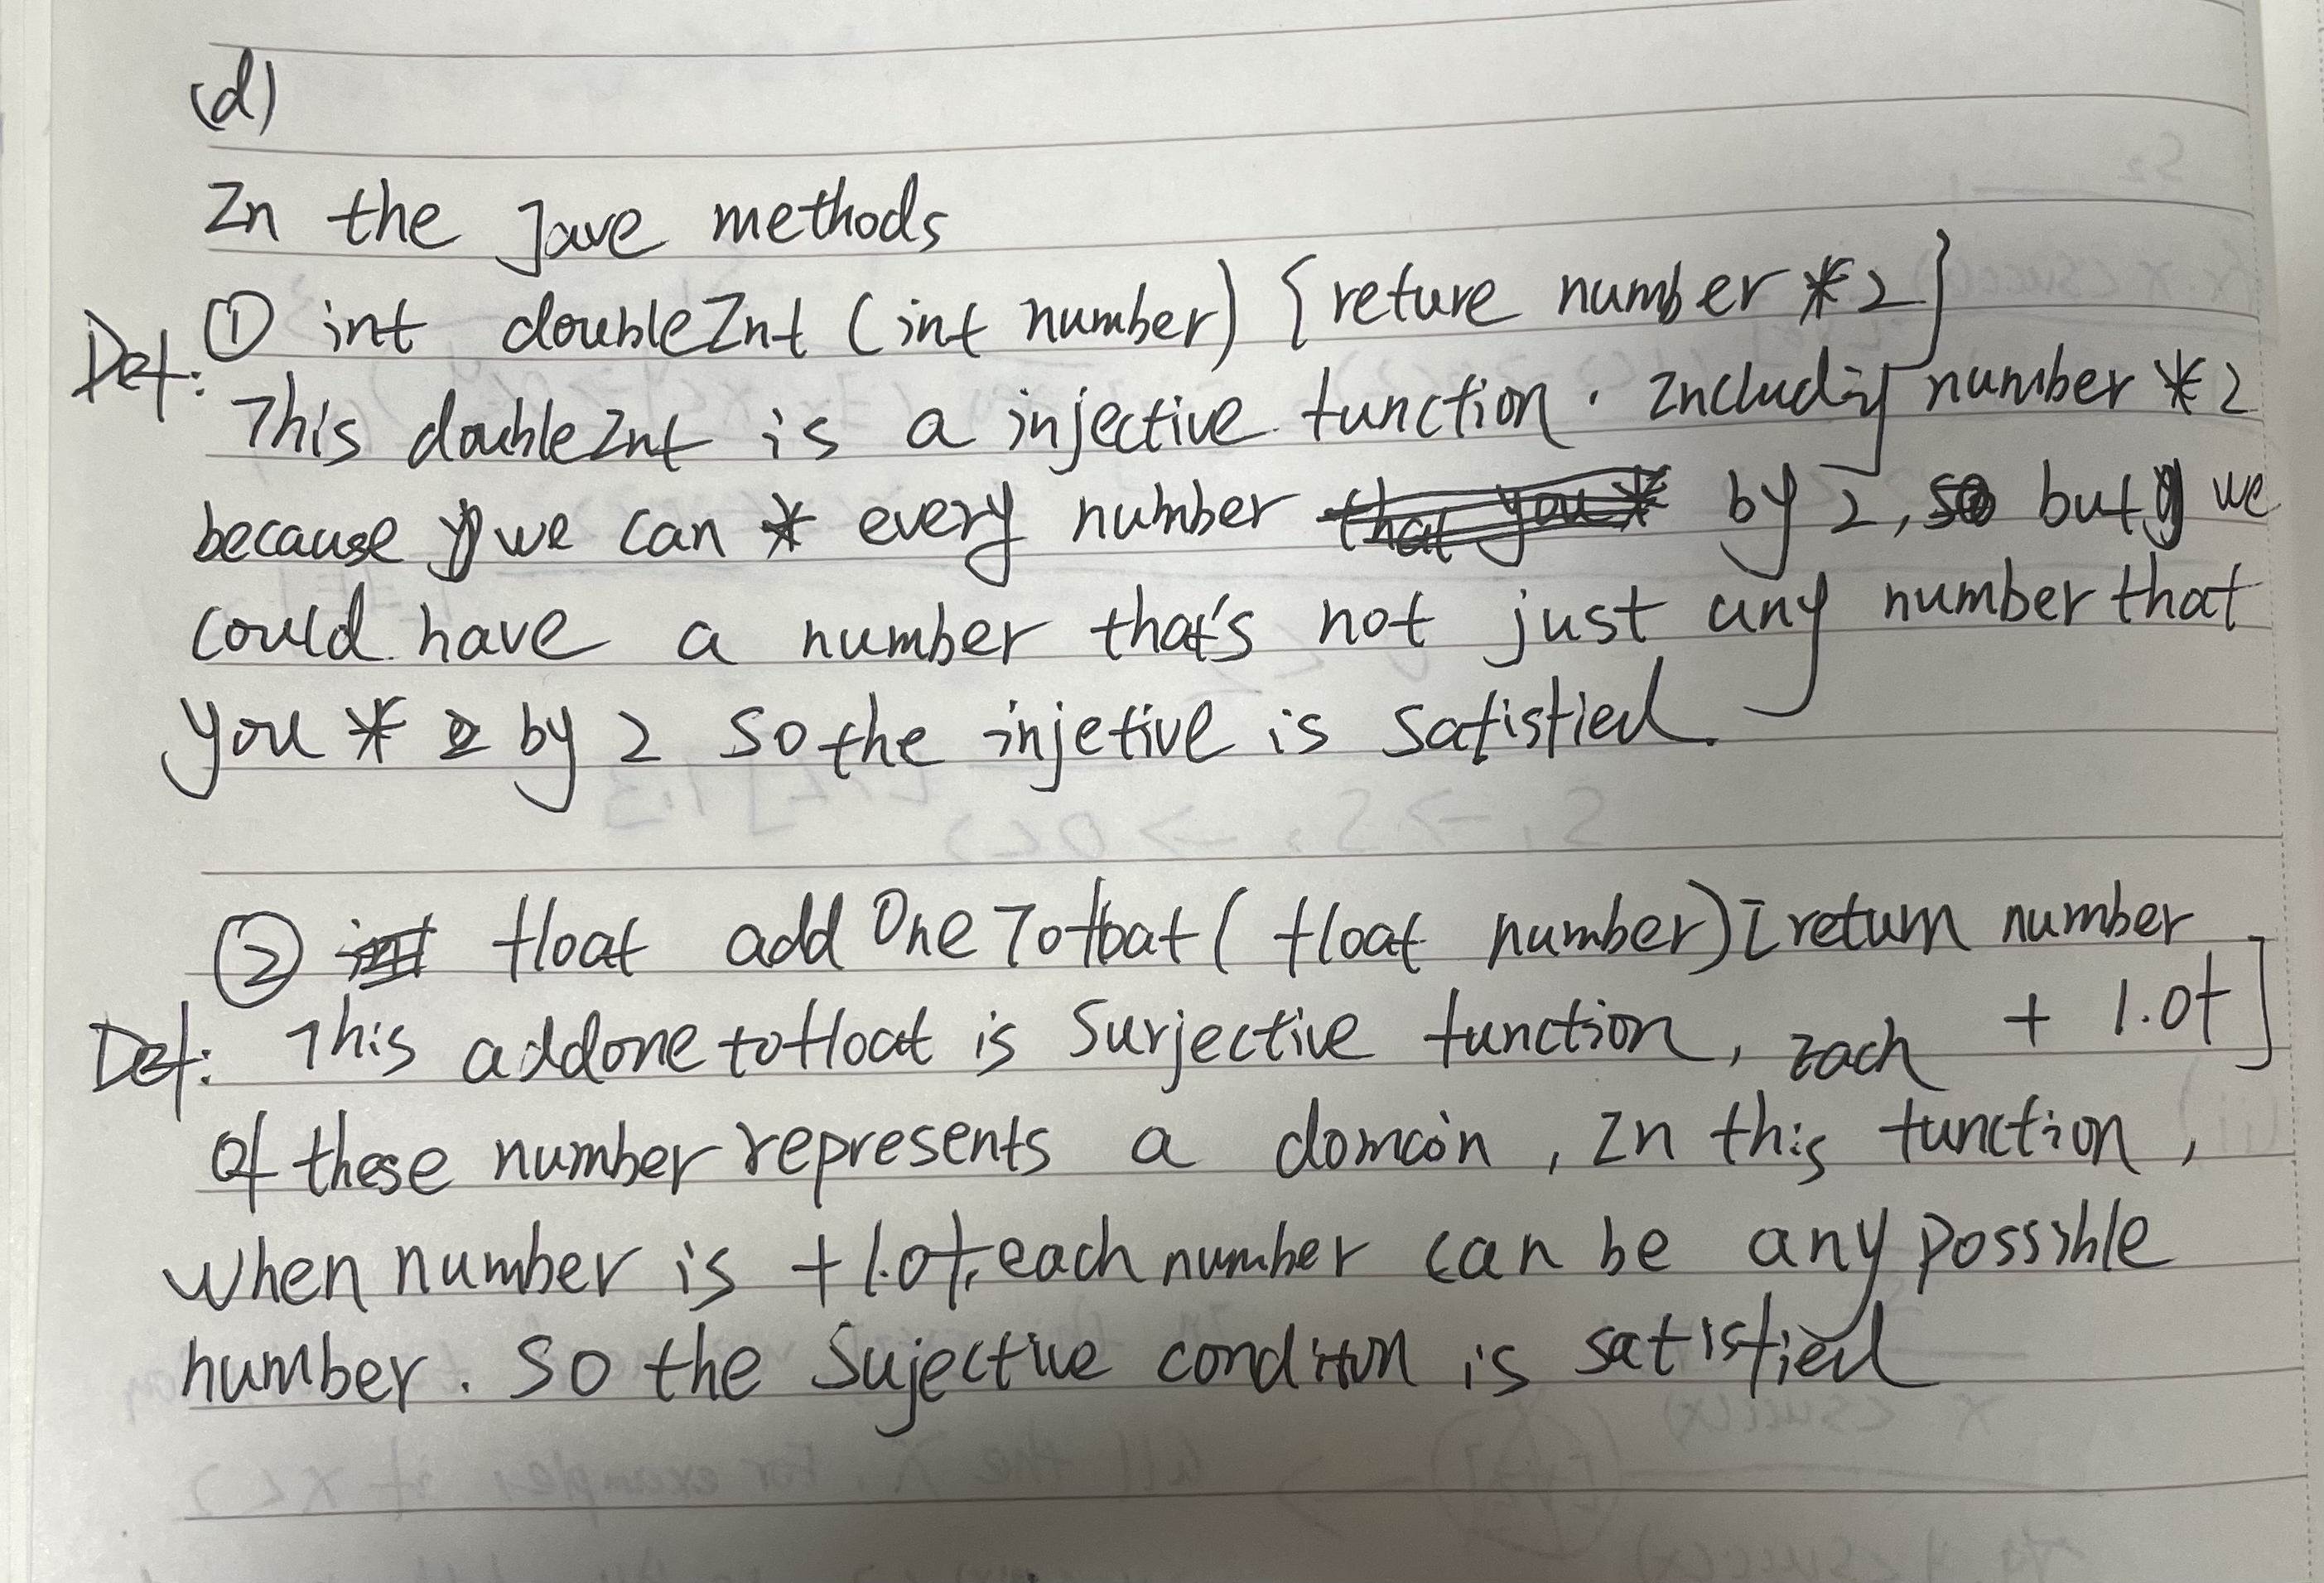 (d)
In the Jave methods
① int doubleInt (int number) {reture number *2}
Def: This doubleInt is a injective function. Including number *2
because we can * every number by 2, but we
could have a number that's not just any number that
you * by 2 so the injetive is satisfied.
② float addOneTofloat( float number)[return number
+ 1.0f]
Def: This addonetofloat is Surjective function, Each
of these number represents a domain, In this function,
when number is +1.0f, each number can be any possible
number. So the Sujective condition is satisfied